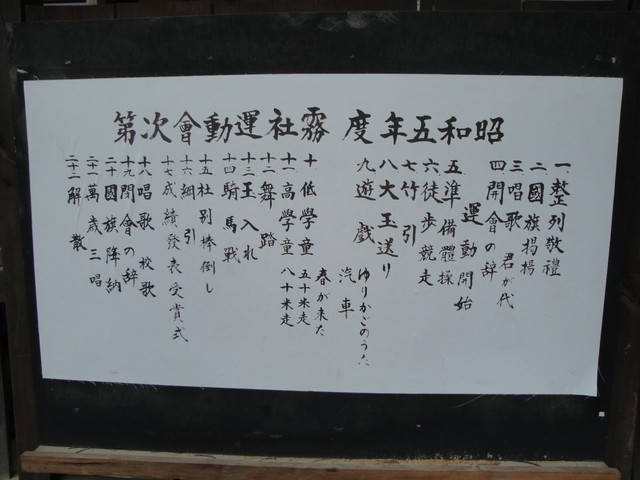 昭和五年度 霧社運動會次第
一整列敬禮
二國旗揭揚
三唱歌 君が代
四開會の辞
運動開始
五準備體操
六徒步競走
七竹引
八大玉送り
九遊戲 ゆりかごのうた
汽車
春が来た
十低學童 五十米走
十一高學童 八十米走
十二舞踏
十三玉入れ
十四騎馬戰
十五社別棒倒し
十六綱引
十七成績發表受賞式
十八唱歌 校歌
十九閉會の辞
二十國旗降納
二十一萬歲三唱
二十二解散